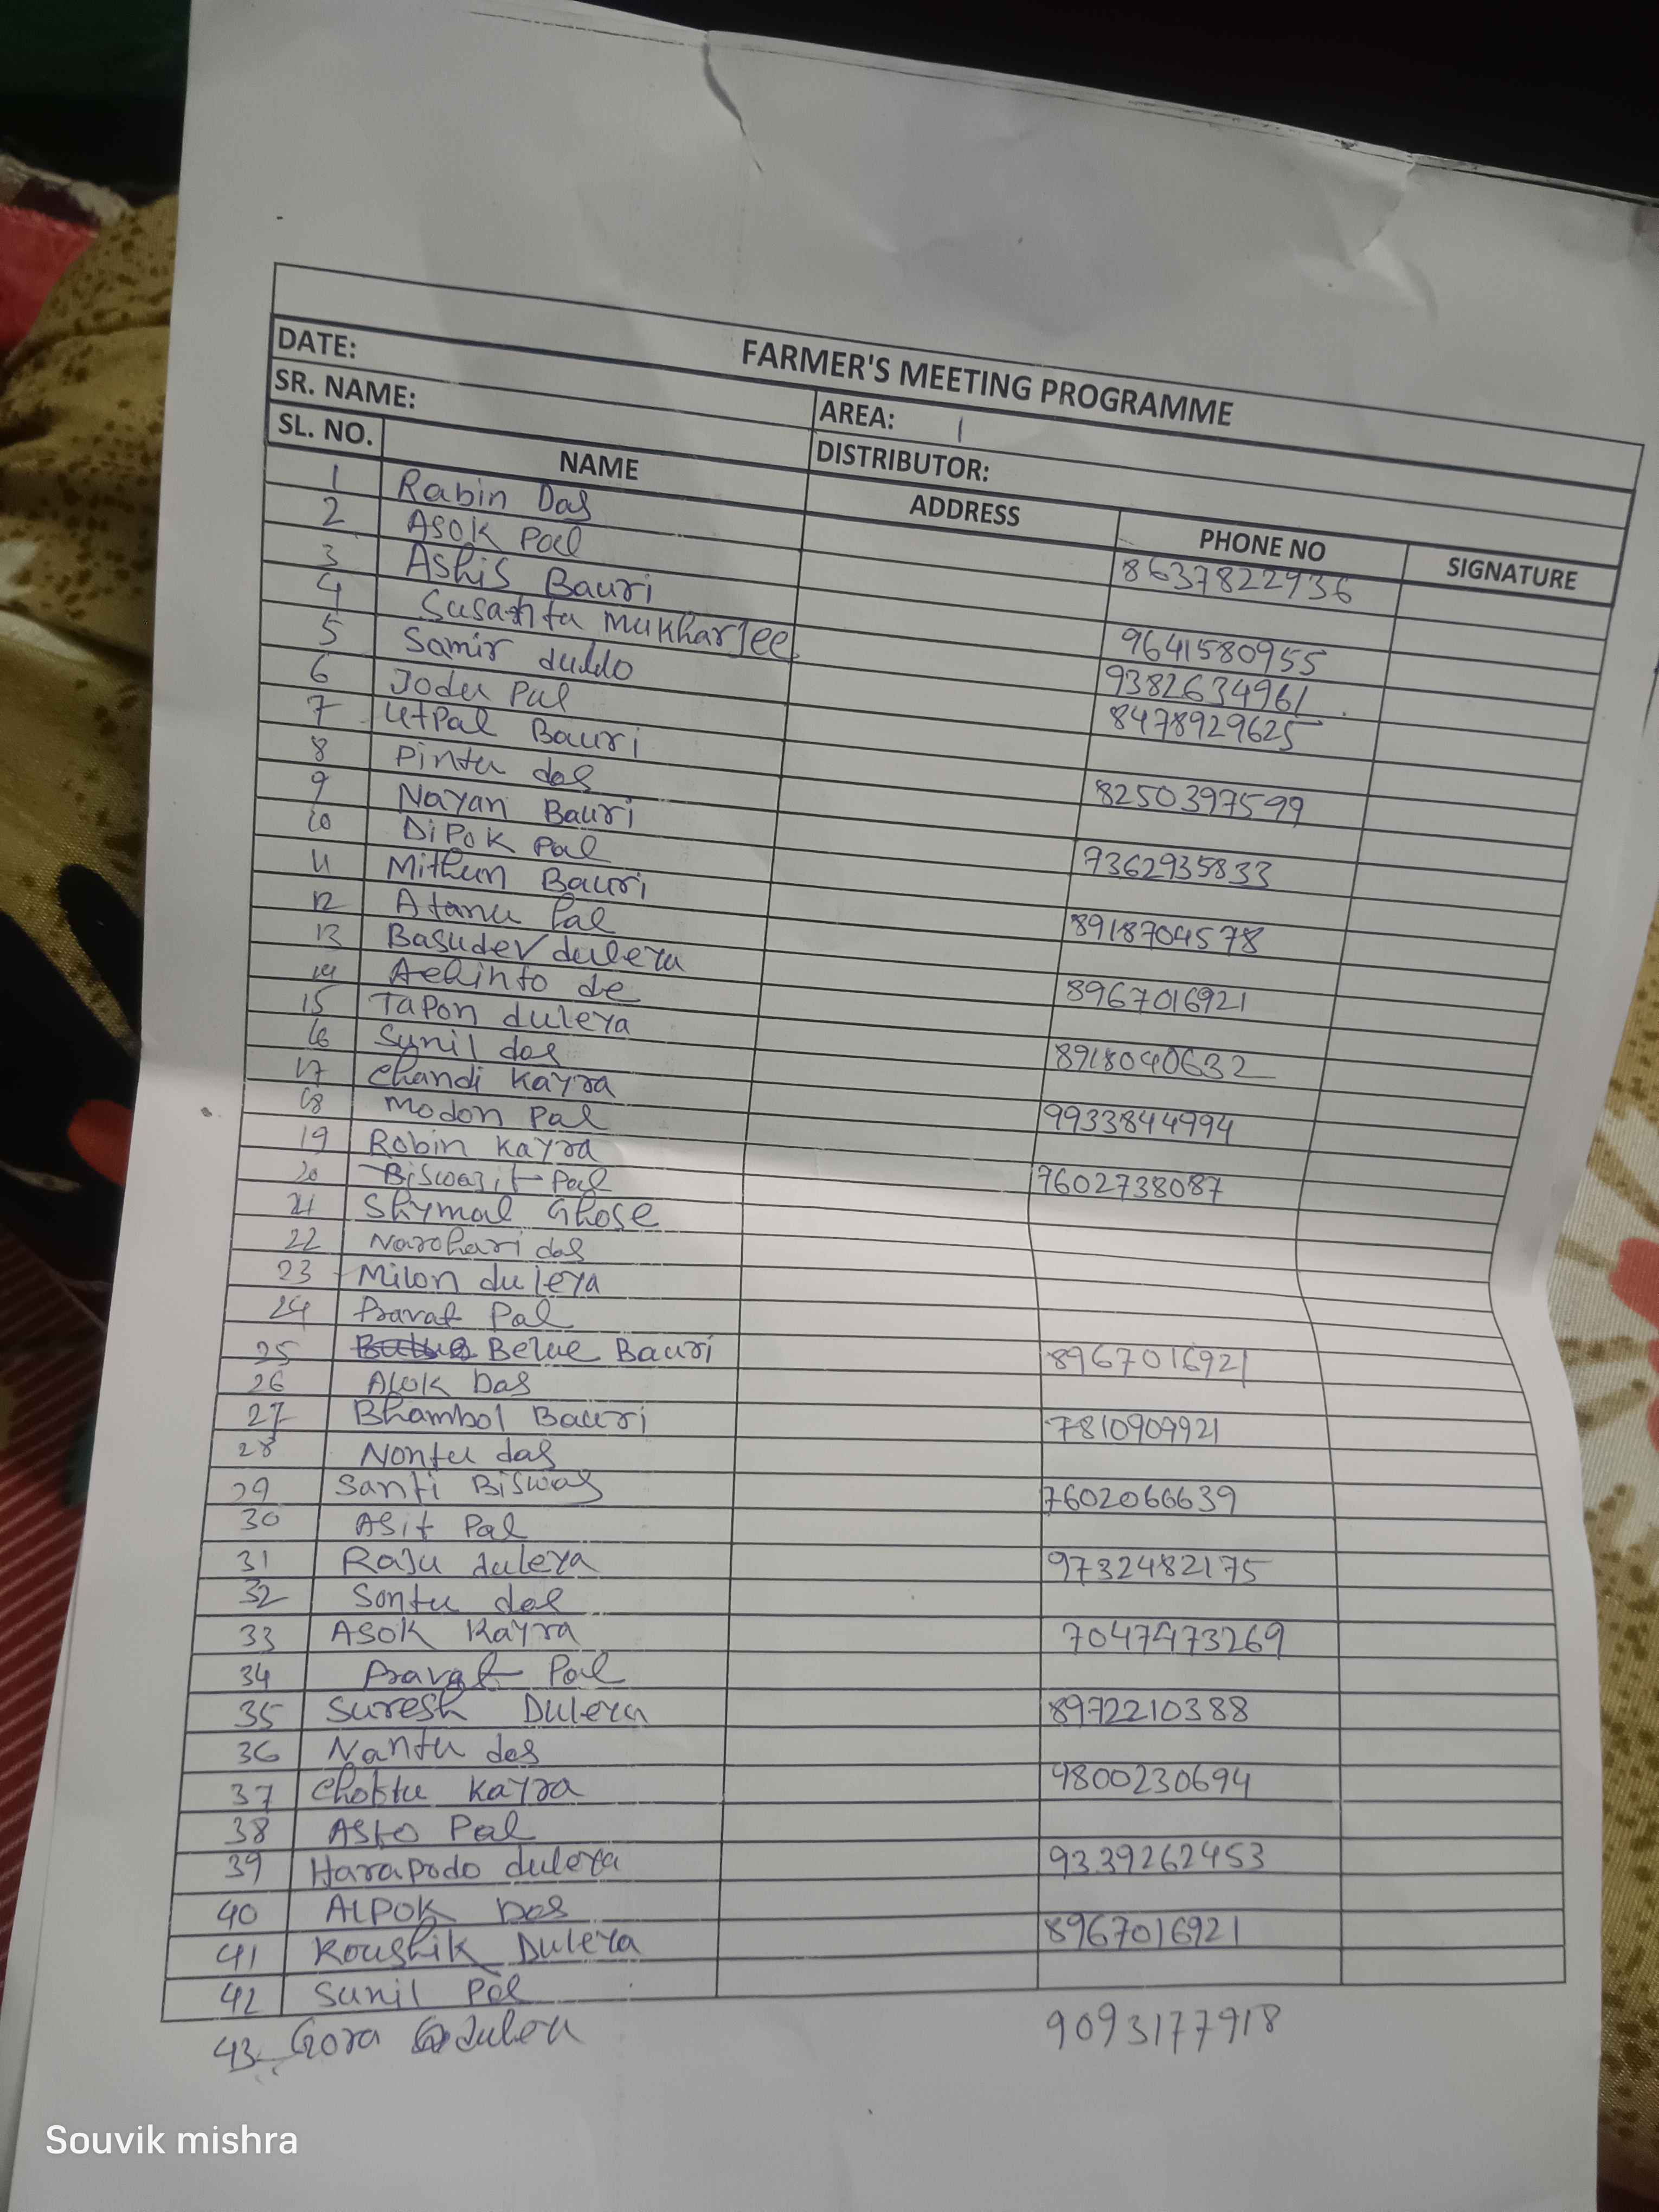 FARMER'S MEETING PROGRAMME
DATE: AREA:
SR. NAME: DISTRIBUTOR:
SL. NO. NAME ADDRESS PHONE NO SIGNATURE
1 Rabin Das 8637822936
2 Asok Pal
3 Ashis Bauri 9641580955
4 Susanta Mukharjee 9382634961
5 Samir duldo 8478929625
6 Jodu Pal
7 Utpal Bauri 8250397599
8 Pintu das
9 Nayan Bauri 7362935833
10 Dipok Pal
11 Mithun Bauri 8918704578
12 Atanu Pal
13 Basudev duleya 8967016921
14 de
15 Tapon duleya 8918040632
16 Sunil das
17 Chandi Kayra 9933844994
18 Modon Pal
19 Robin Kayra 7602738087
20 Biswajit Pal
21 Shymal Ghose
22 Narohari das
23 Milon duleya
24 Pravat Pal
25 Belue Bauri 8967016921
26 Alok Das
27 Bhambol Bauri 7810909921
28 Nontu das
29 Santi Biswas 7602066639
30 Asit Pal
31 Raju duleya 9732482175
32 Sontu das
33 Asok Kayra 7047473269
34 Pravat Pal
35 Suresh Duleya 8972210388
36 Nantu das
37 Choktu Kayra 9800230694
38 Asto Pal
39 Harapodo duleya 9339262453
40 Alpok Das
41 Koushik Duleya 8967016921
42 Sunil Pal
43 Gora dulea 9093177918
Souvik mishra